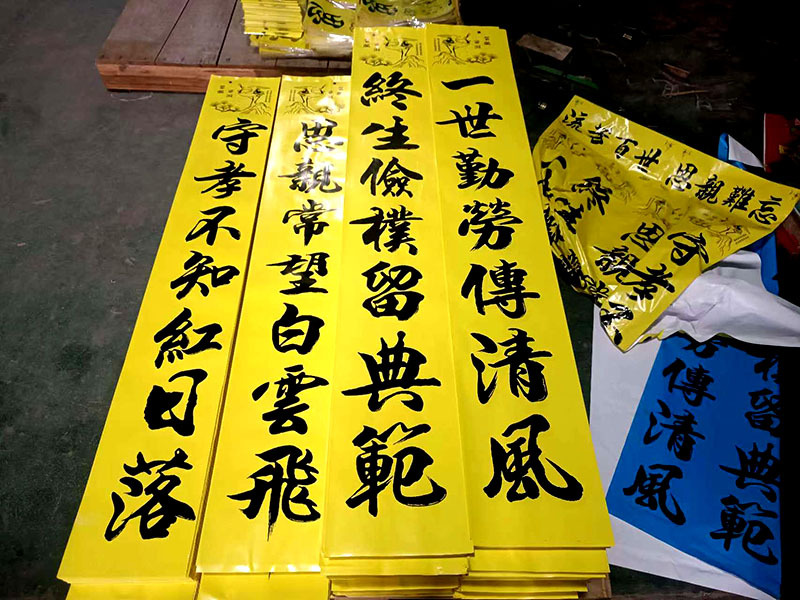 一世勤勞傳清風
終生儉樸留典範
思親常望白雲飛
守孝不知紅日落
流芳百世 思親難忘
守孝
思親
終生
留典範
傳清風